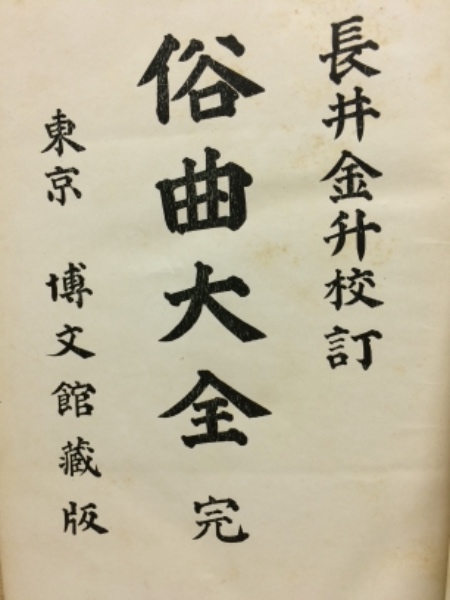 長井金升校訂
俗曲大全 完
東京 博文館藏版